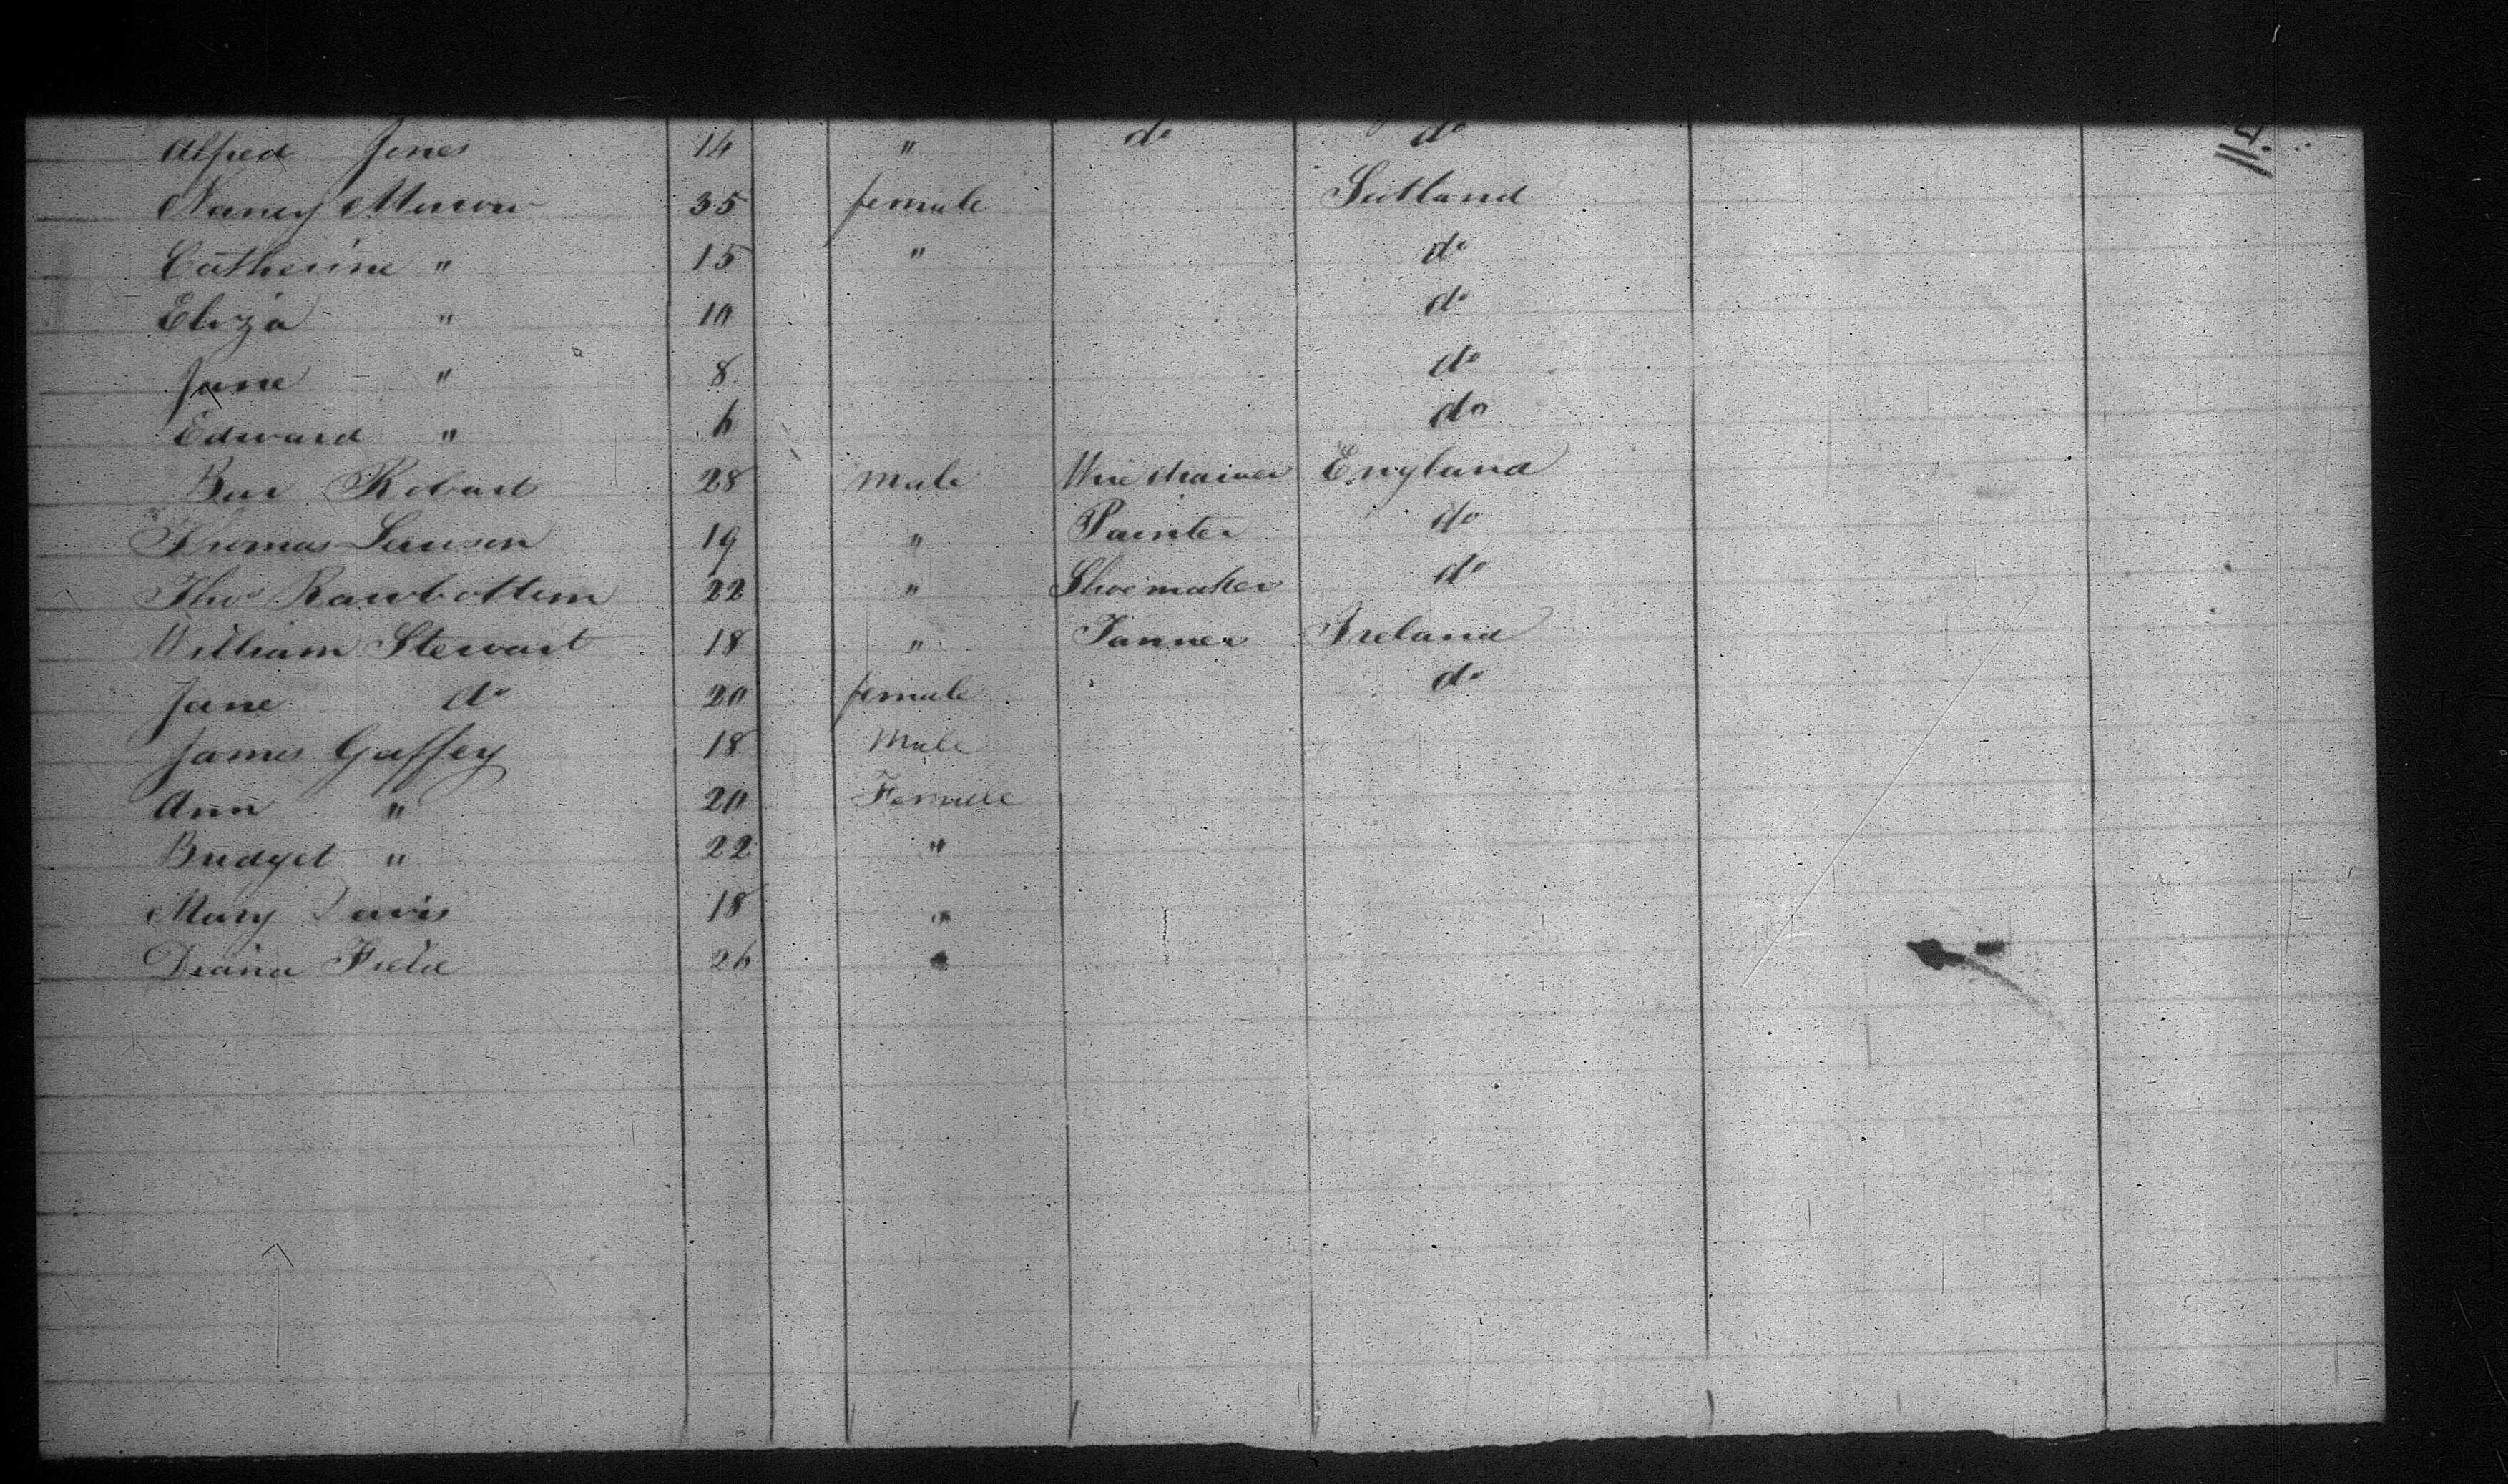 Alfred Jones 14 " do do
Nancy 35 female Scotland
Catherine " 15 " do
Eliza " 10 do
Jane " 8 do
Edward " 6 do
Robart 28 Male England
Thomas 19 " Painter do
Thos Rawbottem 22 " Shoemaker do
William Stewart 18 " Tanner Ireland
Jane do 20 female do
James Gaffey 18 Male
Ann " 20 Female
Bridget " 22 "
Mary Davis 18 "
Diana Field 26 "